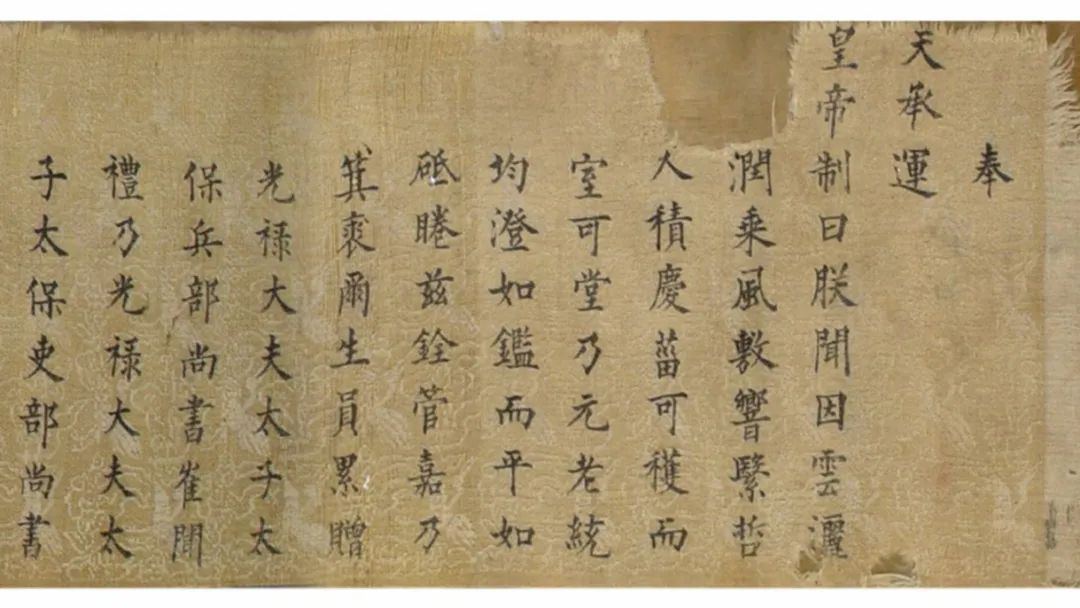 奉
天承運
皇帝制曰朕聞因雲灑
潤乘風敷響緊哲
人積慶菑可穫而
室可堂乃元老統
均澄如鑑而平如
砥睠茲銓管嘉乃
箕裘爾生員累贈
光祿大夫太子太
保兵部尚書崔聞
禮乃光祿大夫太
子太保吏部尚書